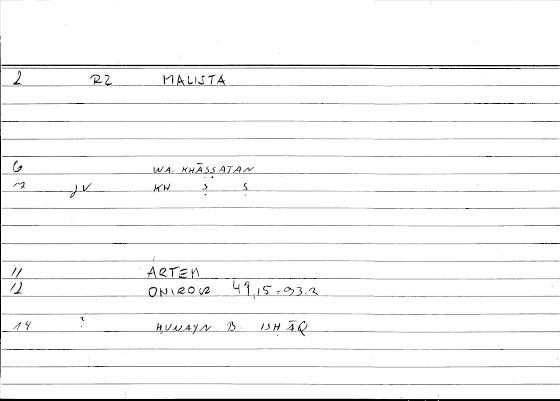 2 RZ MALISTA
6 WA KHĀṢṢATAN
7 JV KH Ṣ Ṣ
11 ARTEM
12 ONIROCR 49,15 = 93.2
14 ? ḤUNAYN B. ISḤĀQ